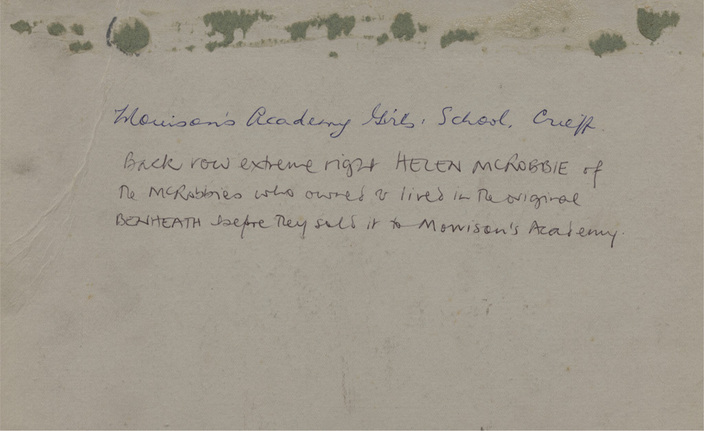 Morrison's Academy Girls, School, Crieff.
Back row extreme right HELEN MCROBBIE of
the McRobbies who owned & lived in the original
BENHEATH before they sold it to Morrison's Academy.